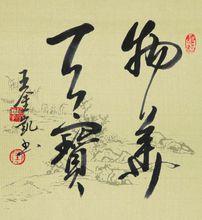 物華
天寶
王金凱书